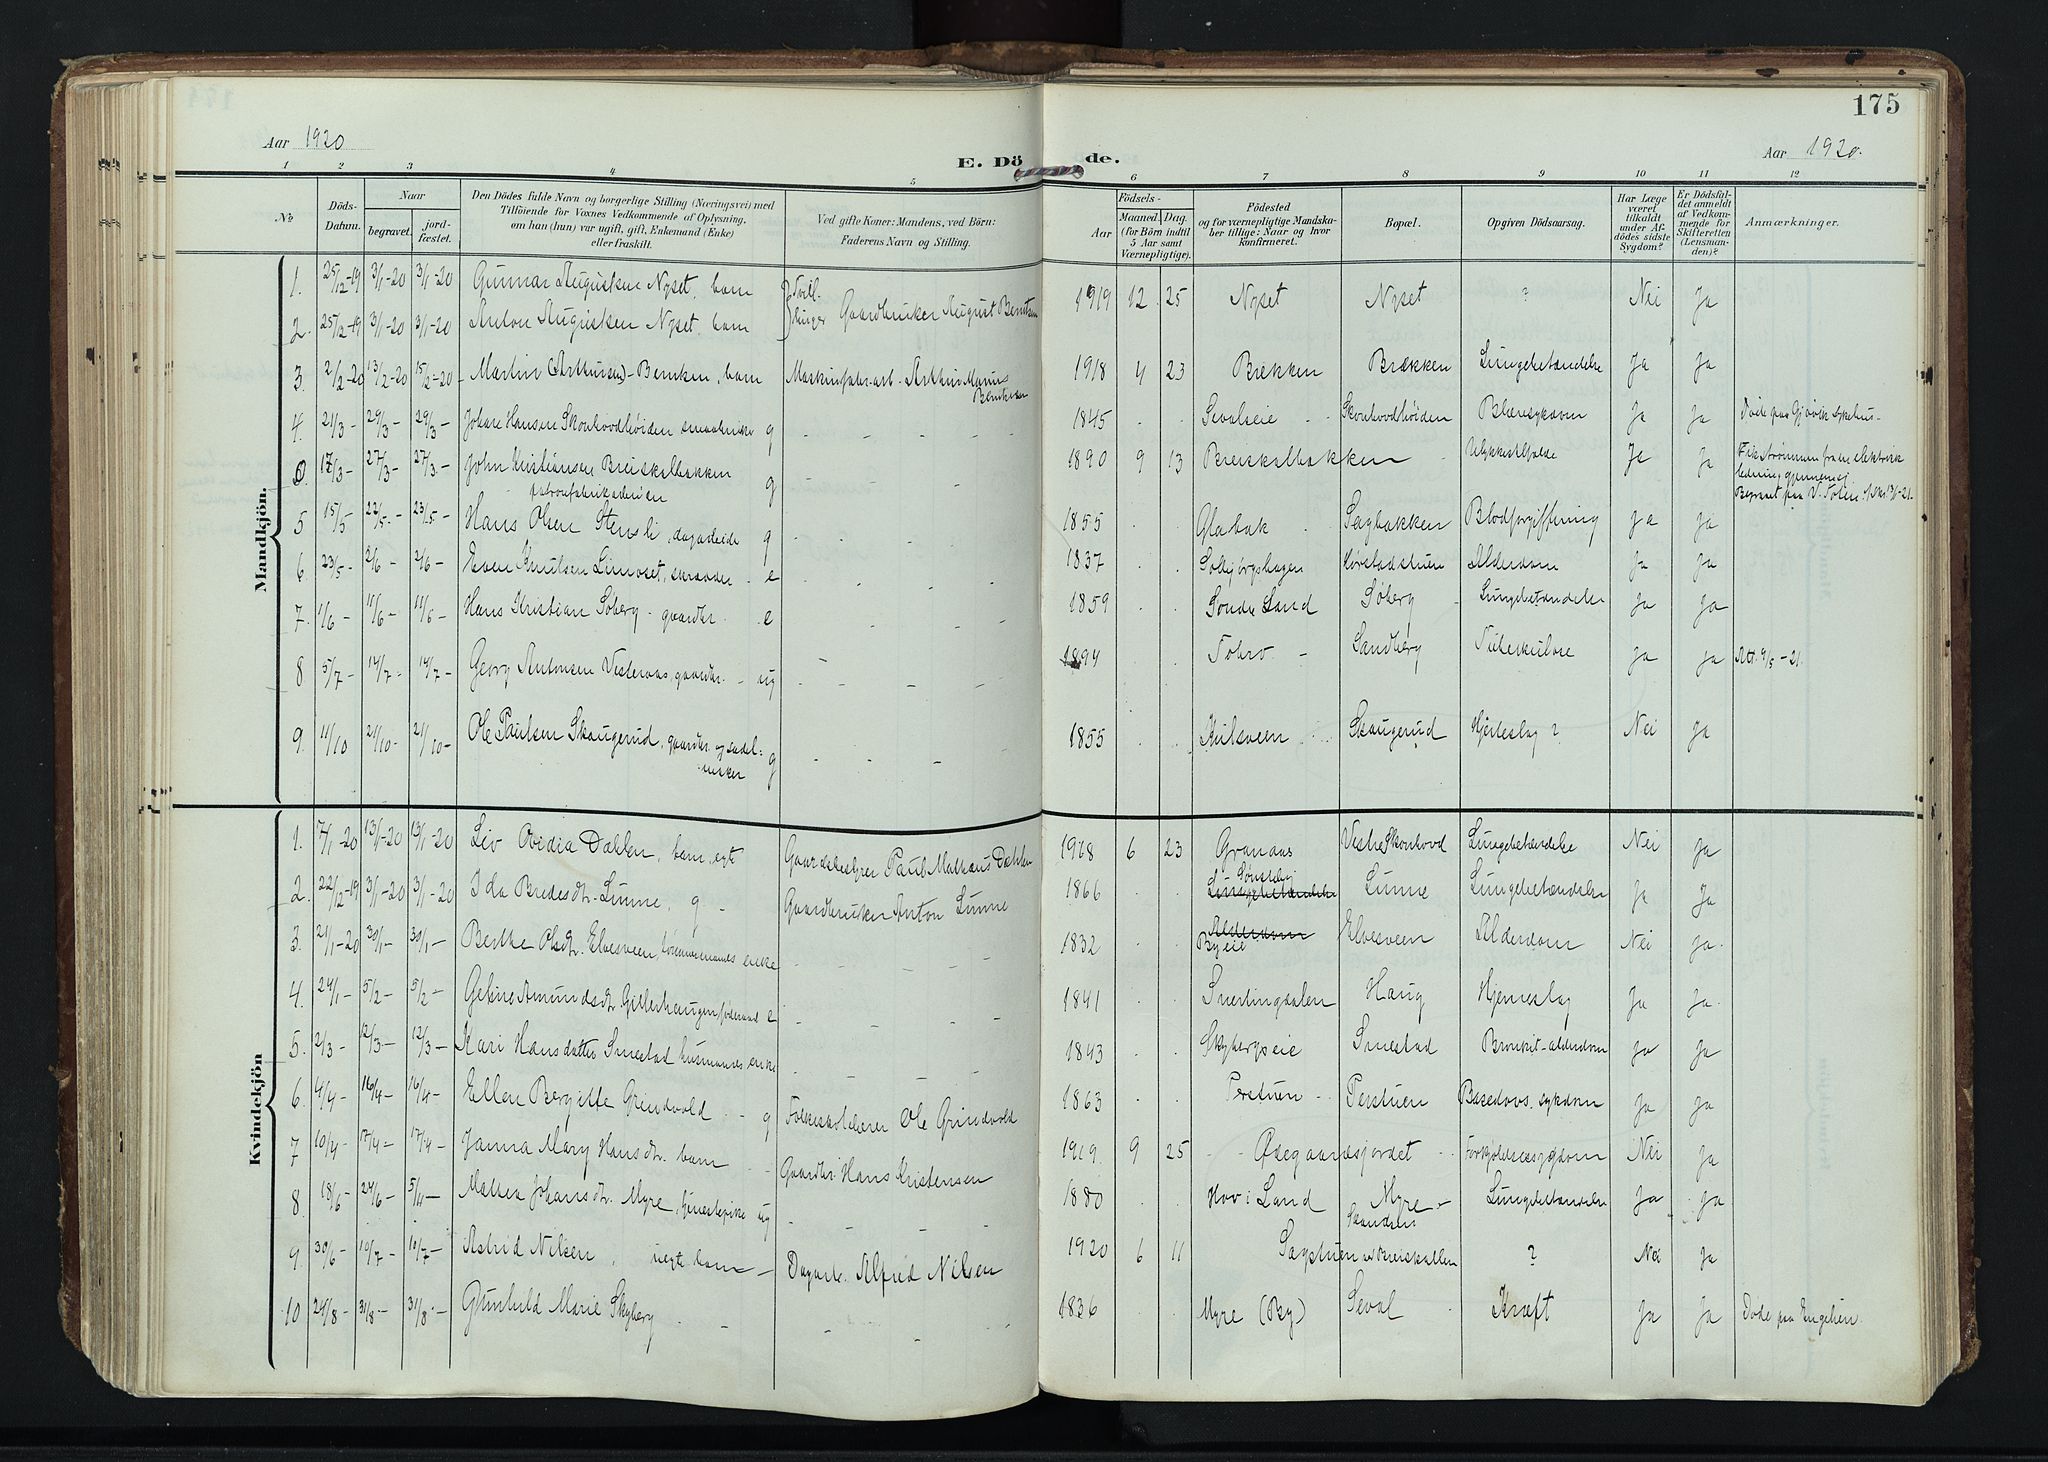 175
Aar 1920
E. Döde.
Aar 1920.
1 2 3 4 5 6 7 8 9 10 11 12
No
Döds-Datum.
Naar
begravet.
jord-fæstet.
Den Dödes fulde Navn og borgerlige Stilling (Næringsvei) med
Tilföiende for Voxnes Vedkommende af Oplysning,
om han (hun) var ugift, gift, Enkemand (Enke)
eller fraskilt.
Ved gifte Koner: Mandens, ved Börn:
Faderens Navn og Stilling.
Födsels-
Aar
Maaned. Dag.
(for Börn indtil
5 Aar samt
Værnepligtige).
Födested
og for værnepligtige Mandska-
ber tillige: Naar og hvor
konfirmeret.
Bopæl.
Opgiven Dödsaarsag.
Har Læge
været
tilkaldt
under Af-
dödes sidste
Sygdom?
Er Dödsfal-
det anmeldt
af Vedkom-
mende for
Skifteretten
(Lensman-
den)?
Anmærkninger.
Mandkjön.
1. 25/12-19 3/1-20 3/1-20 Gunnar Augustsen Nyset, barn Tvill- 1919 12 25 Nyset Nyset ? Nei Ja
2. 25/12-19 3/1-20 3/1-20 Anton Augustsen Nyset, barn linger Gaardbruker August Berntsen
3. 2/2-20 13/2-20 15/2-20 Martin (Arthursen) Berntsen, barn Maskinfabr.arb. Arthur Marius 1918 4 23 Brekken Brækken Lungebetændelse Ja Ja
4. 21/3- 29/3- 29/3- Johan Hansen Skonhovdhøiden smaabruker g 1845 Sevalseie Skonhovdhøiden Blæresykdom Ja Ja Døde paa Gjøvik sykehus
17/3- 27/3- 27/3- John Kristiansen Breiskalbakken g 1890 9 13 Breiskalbakken Ulykkestilfælde Ja Ja Fik strømmen fra en elektrisk
patronfabrikarbeider
ledning gjennem sig.
Begravet paa V. Toten
5 15/5 22/5- 23/5- Hans Olsen Stensli, dagarbeider g 1855 Glæbak Sagbakken Blodforgiftning Ja Ja
6. 23/5- 2/6- 2/6- Even Knutsen Limoset, e 1837 Solbjørgshagen Alderdom Ja Ja
7. 1/6- 11/6- 11/6- Hans Kristian Søberg - gaardbr. e 1859 Søndre Land Søberg Lungebetændelse Ja Ja
8 5/7- 14/7- 14/7- Georg Antonsen Vesteraas, gaardbr. - ug 1894 Sandberg Tuberkulose Ja Ja Att. 9/5-21.
9. 11/10 21/10- 21/10- Ole Paulsen Skaugerud, gaardbr. og sadel- g 1855 Skaugerud Hjerteslag? Nei Ja
maker
Kvindekjön
1. 7/1-20 13/1-20 13/1-20 Liv Ovidia Dahlen, barn, egte Gaardsbestyrer Paul Mathæus Dahlen 1918 6 23 Granaas Vestre Skonhovd Lungebetændelse Nei Ja
2. 22/12-19 3/1-20 3/1-20 Ida Bredesdtr. Lunne, g Gaardbruker Anton Lunne 1866 Lungebetændelse Lunne Lungebetændelse Ja Ja
3. 21/1-20 30/1- 30/1- Berthe Olsdtr. Elvesveen, enke 1832 Alderdom Byeie Elvesveen Alderdom Nei Ja.
4. 24/1- 5/2- 5/2- Amundsdtr. e 1841 Snertingdalen Haug Hjerneslag Ja Ja.
5. 2/3- 12/3- 12/3- Kari Hansdatter Smestad husmands enke 1843 Skybergseie Smestad Bronkit-alderdom Ja Ja
6. 4/4- 16/4- 16/4- Ellen Bergitte Grindvold - g Folkeskolelærer Ole Grindvold 1863 Perstuen Perstuen Basedovs. sykdom Ja Ja
7 10/4 17/4- 17/4- Janna Mary Hansdtr. barn Gaardbr. Hans Kristensen 1919. 9 25 Øsegaardsjordet Forkjølelsessygdom Nei Ja
8. 18/6- 24/6- 5/4- Mathea Johansdtr. Myre, tjenestepike ug 1880 Hov i Land Myre Lungebetændelse Ja Ja
9 30/6- 10/7- 10/7- Astrid Nilsen, uegte barn Dagarb. Alfred Nilsen 1920 6 11 Sagstuen Breiskallen ? Nei Ja
10 24/8- 31/8- 31/8- Gunhild Marie Skyberg 1836 Myre (By) Seval Kræft Ja Ja Døde paa Engelien.